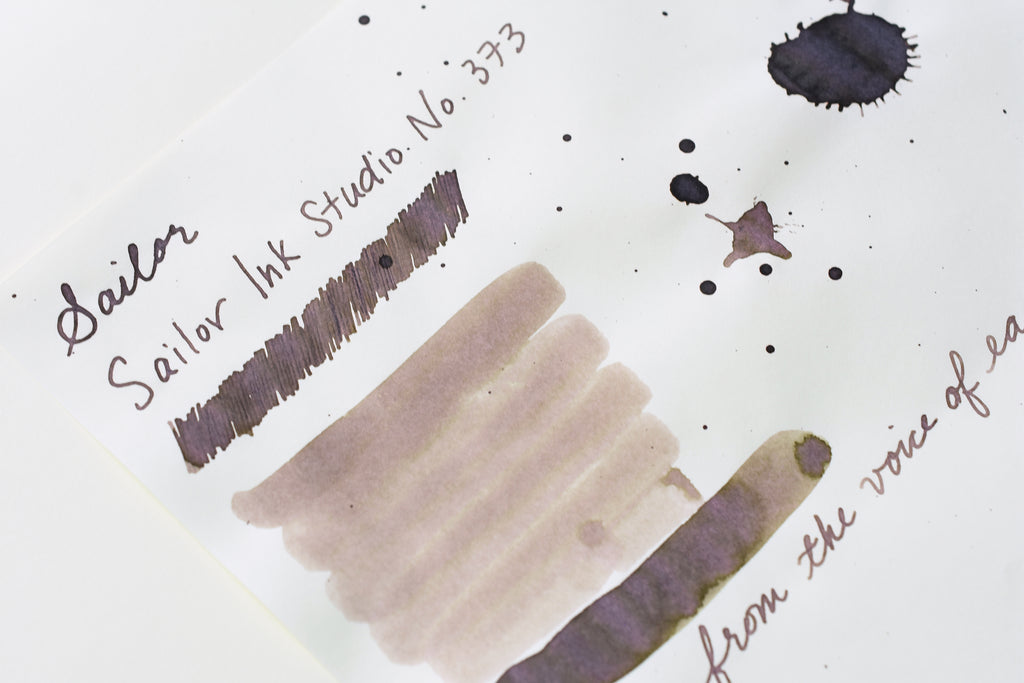 Sailor
Sailor Ink Studio. No. 373
from the voice of ea